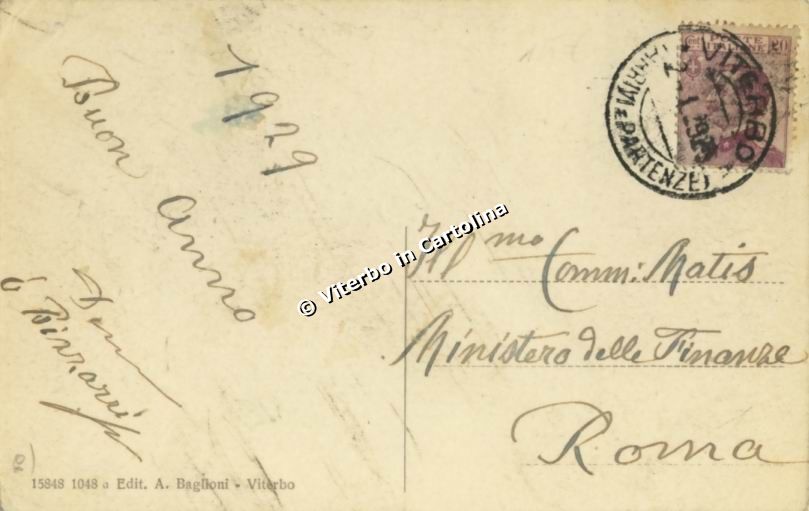 Buon Anno
1929
Bizzarri
POSTE ITALIANE
20
VITERBO
(ARRIVI E PARTENZE)
1929
Ill.mo Comm: Matis
Ministero delle Finanze
Roma
© Viterbo in Cartolina
15848 1048 a Edit. A. Baglioni - Viterbo